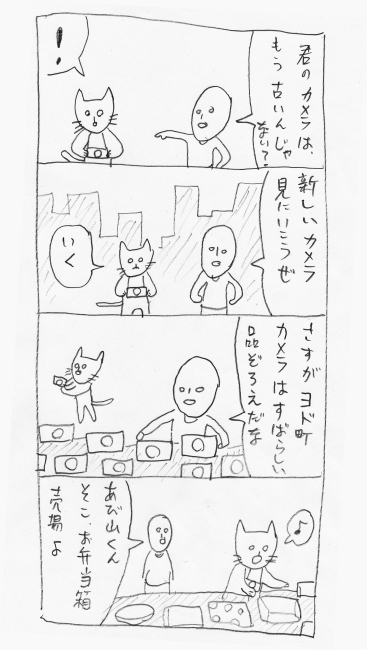 ！
君のカメラは、
もう古いんじゃ
ない？
新しいカメラ
見にいこうぜ
いく
さすがヨド町
カメラはすばらしい
品ぞろえだな
♪
あび山くん
そこ、お弁当箱
売場よ